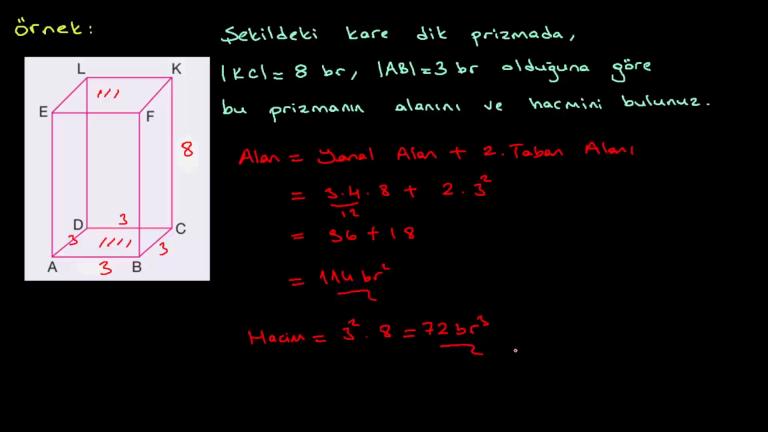 örnek:
Şekildeki kare dik prizmada,
|KC|= 8 br, |AB|=3 br olduğuna göre
bu prizmanın alanını ve hacmini bulunuz.
L K
E F
8
D 3 C
3 3
A 3 B
Alan = Yanal Alan + 2. Taban Alanı
= 3.4.8 + 2.3²
12
= 96 + 18
= 114 br²
Hacim = 3². 8 = 72 br³